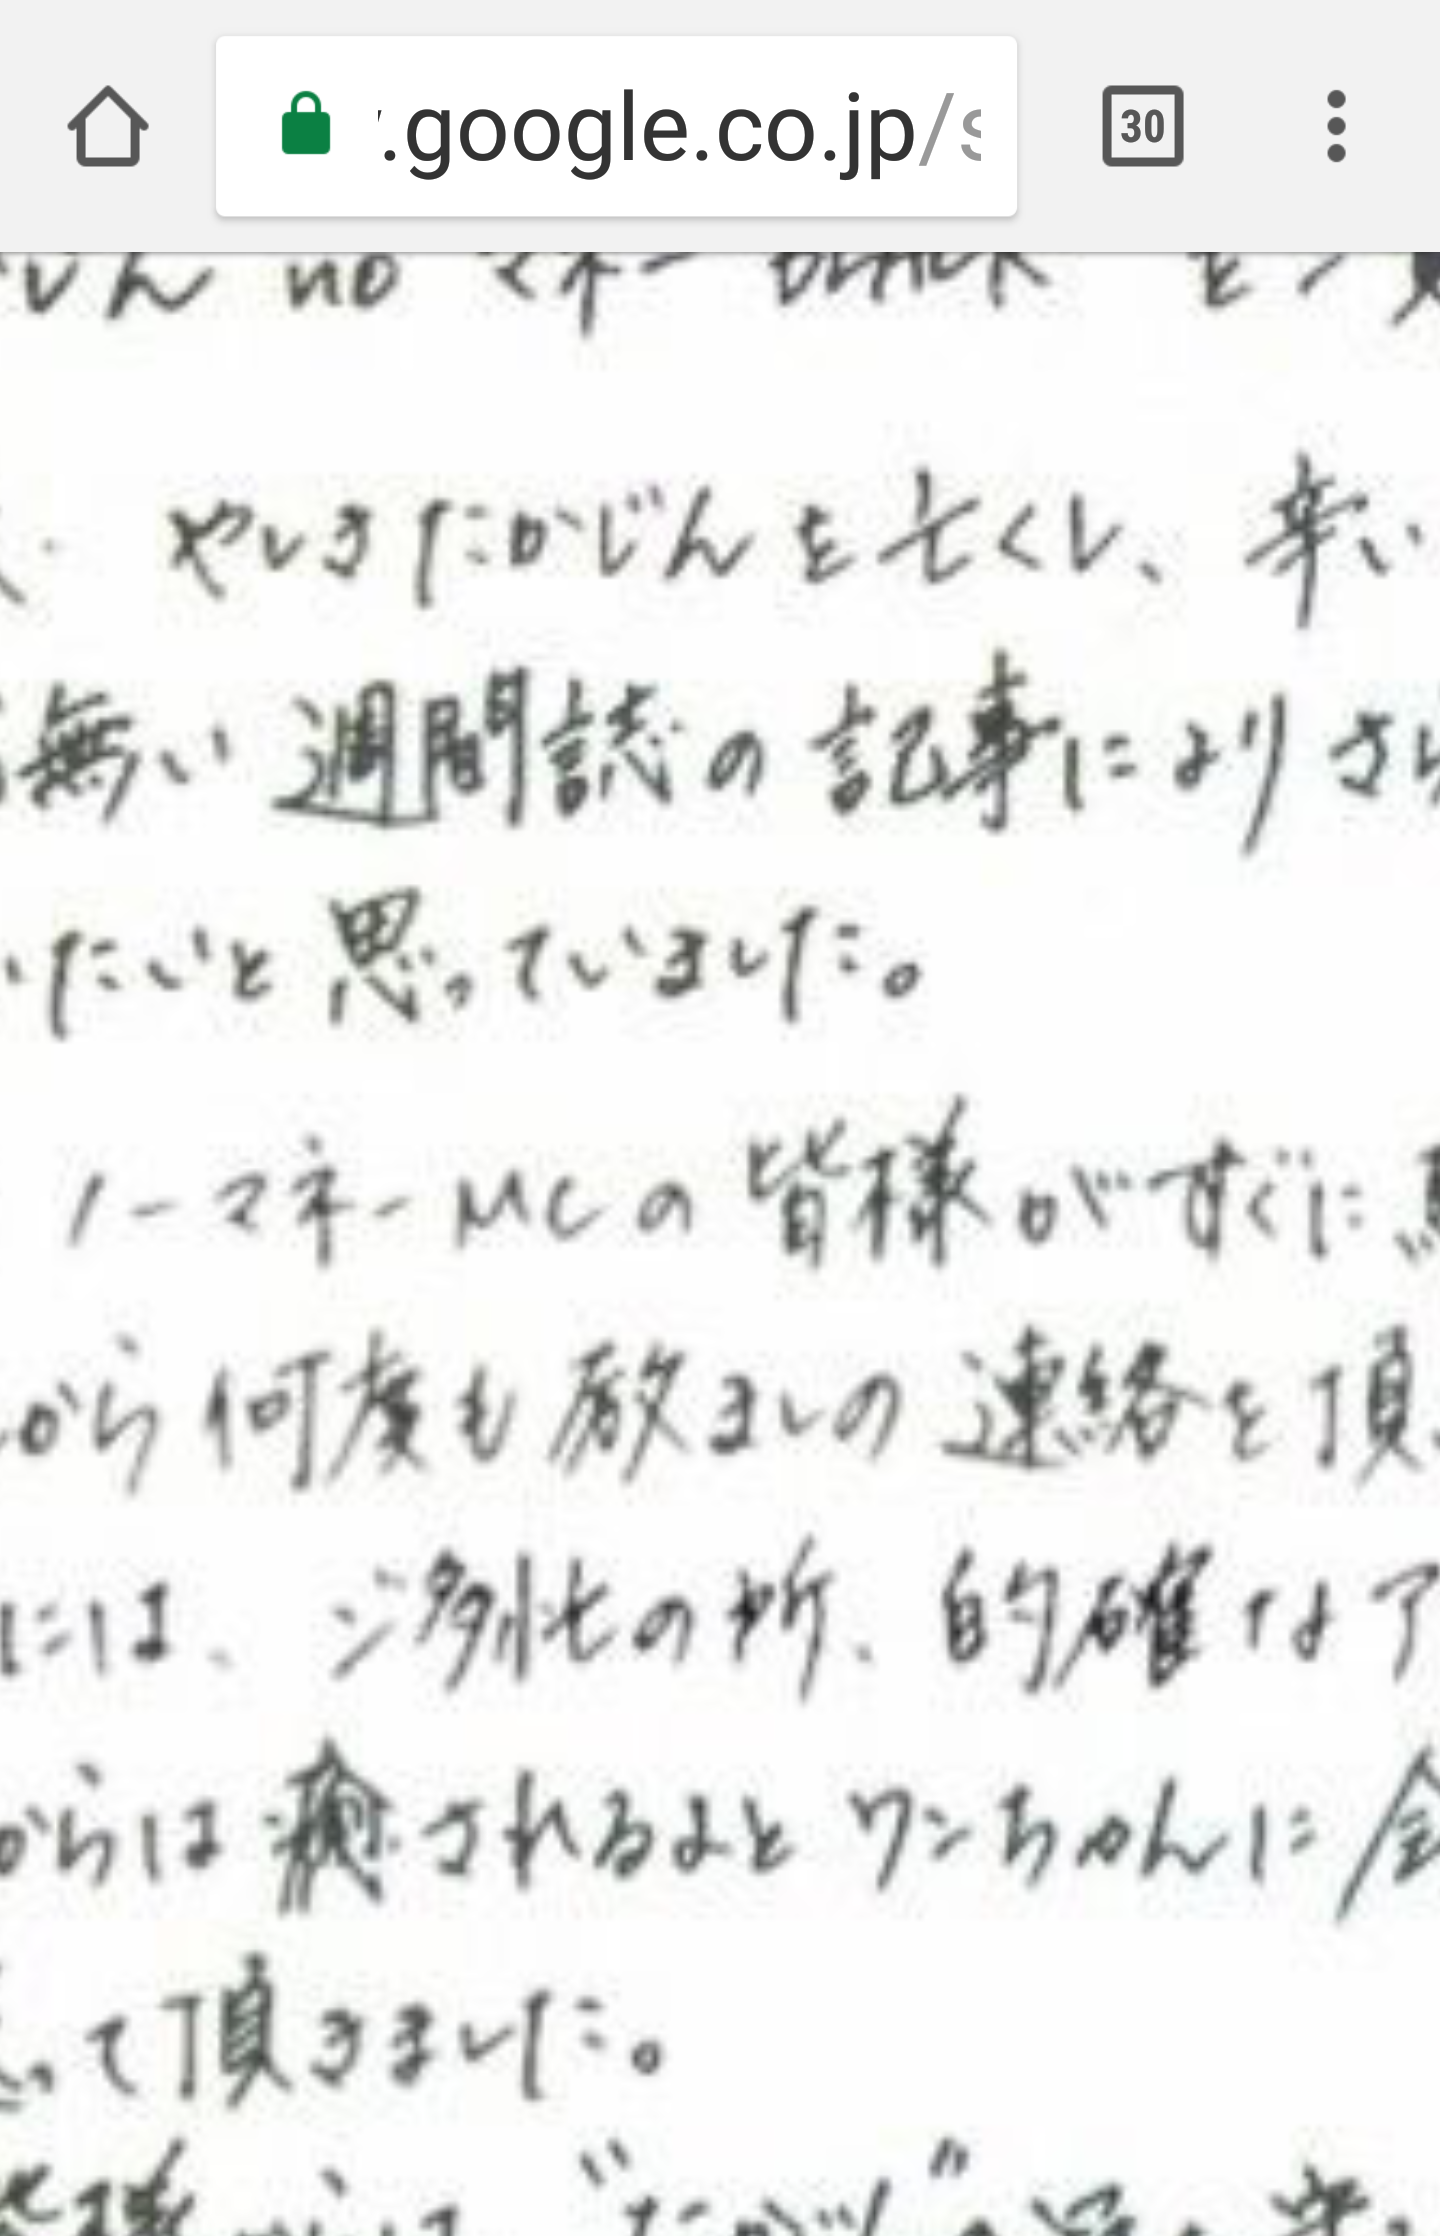 .google.co.jp/s
30
じん no マネー black を
やしきたかじんを亡くし、辛い
無い週間誌の記事によりさ
いたいと思っていました。
ノーマネーMCの皆様がすぐに
から何度も励ましの連絡を頂
には、ジ多忙の折、的確なア
からは癒されるよとワンちゃんに会
って頂きました。